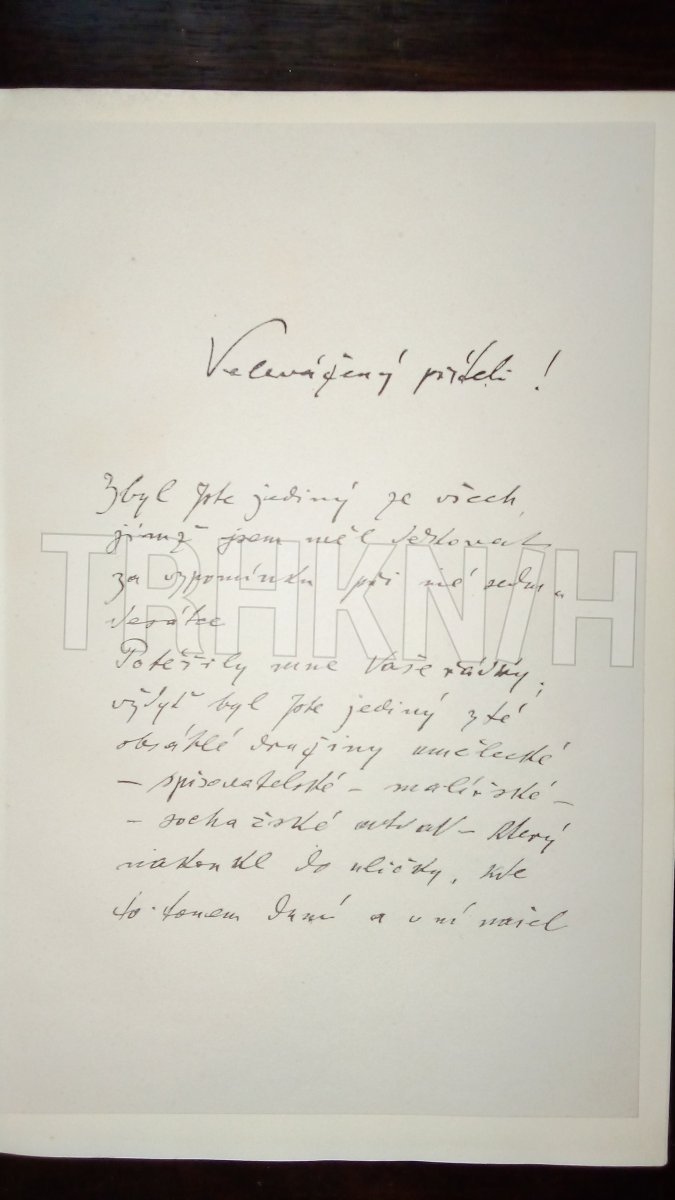 Velevážený příteli!
Zbyl jste jediný ze všech,
jimž jsem měl děkovat
za vzpomínku při mé sedm„
desátce
Potěšily mne Vaše řádky,
vždyť byl jste jediný z té
obsáhlé družiny umělecké
– spisovatelské – malířské –
– sochařské – který
nakoukl do uličky, kde
to tonem dumá a v ní našel
TRHKNIH